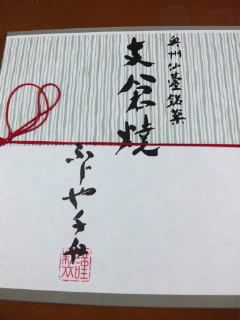 奥州仙臺銘菓
支倉焼
ふじや千舟
謹製